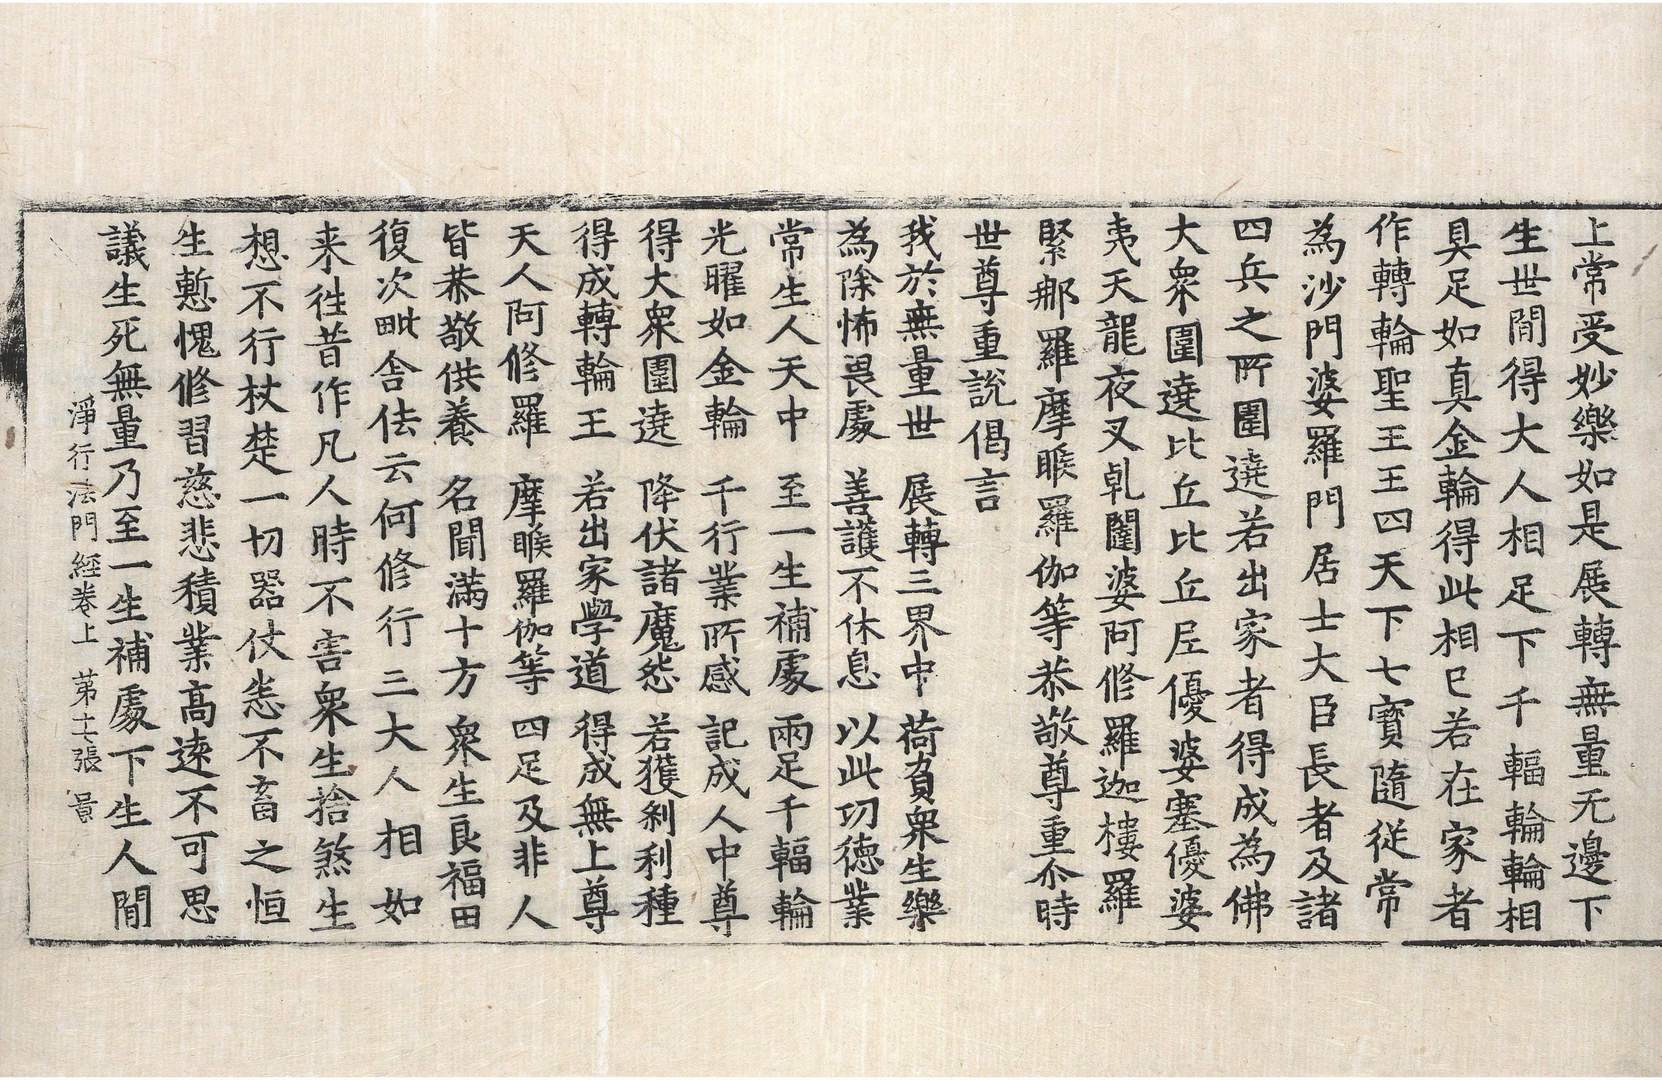 上常受妙樂如是展轉無量无邊下
生世閒得大人相足下千輻輪輪相
具足如真金輪得此相已若在家者
作轉輪聖王王四天下七寶隨從常
為沙門婆羅門居士大臣長者及諸
四兵之所圍遶若出家者得成為佛
大衆圍遶比丘比丘尼優婆塞優婆
夷天龍夜叉乹闥婆阿修羅迦樓羅
緊那羅摩睺羅伽等恭敬尊重尒時
世尊重說偈言
我於無量世　展轉三界中　荷負衆生樂
為除怖畏處　善護不休息　以此功德業
常生人天中　至一生補處　兩足千輻輪
光曜如金輪　千行業所感　記成人中尊
得大衆圍遶　降伏諸魔怨　若獲剎利種
得成轉輪王　若出家學道　得成無上尊
天人阿修羅　摩睺羅伽等　四足及非人
皆恭敬供養　名聞滿十方　衆生良福田
復次毗舍佉云何修行三大人相如
来徃昔作凡人時不害衆生捨煞生
想不行杖楚一切器仗恚不畜之恒
生慙愧修習慈悲積業高遠不可思
議生死無量乃至一生補處下生人閒
淨行法門經卷上　第十七張　景